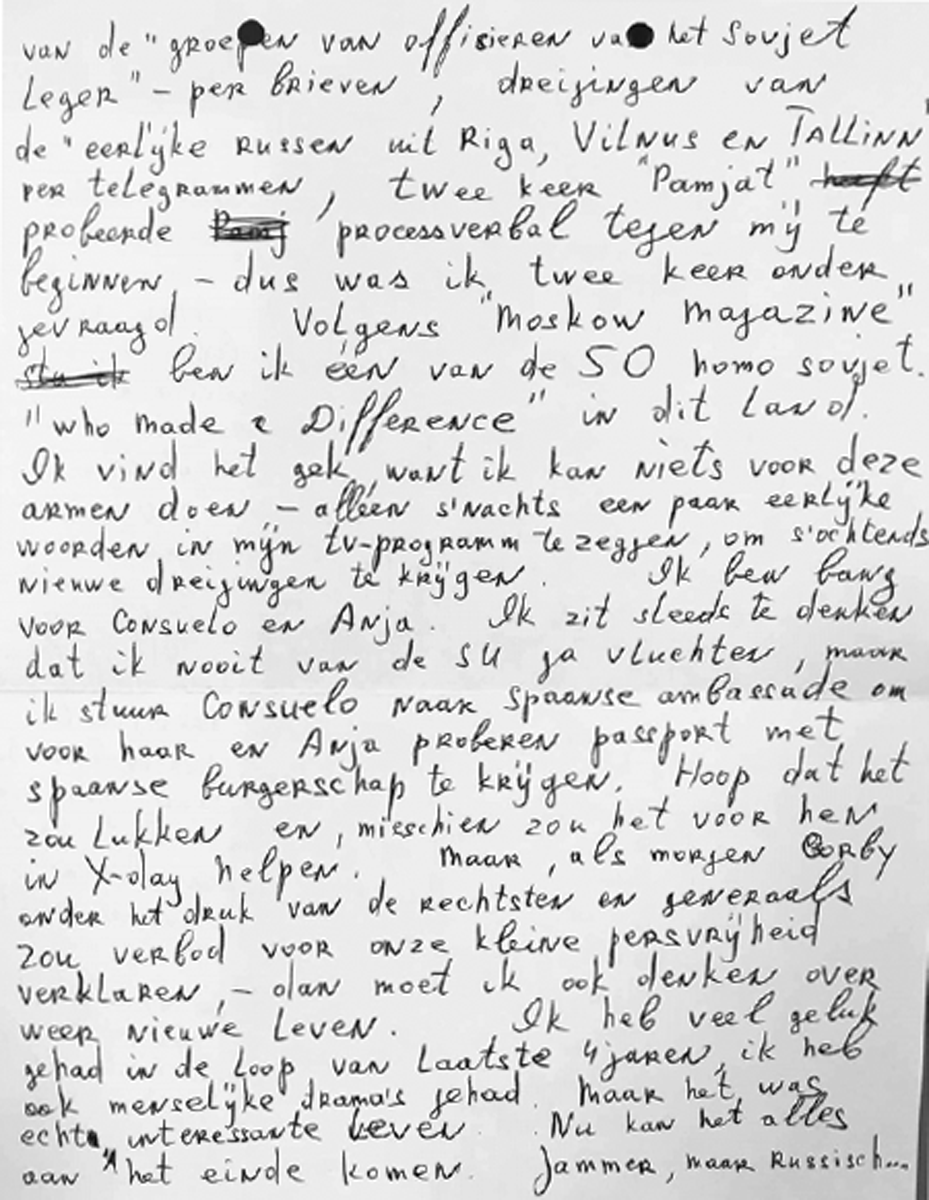 van de "groepen van offisieren van het Sovjet
Leger" – per brieven, dreijingen van
de "eerlijke Russen uit Riga, Vilnus en TALLINN"
per telegrammen, twee keer "Pamjat" heeft
probeerde Pamj processverbal tegen mij te
beginnen, – dus was ik twee keer onder
jevraagd. Volgens "Moskow Magazine"
ben ik één van de 50 homo sovjet.
"who made a Difference" in dit Land.
Ik vind het gek, want ik kan niets voor deze
armen doen – alléén s'nachts een paar eerlijke
woorden in mijn tv-programm te zeggen, om s'ochtends
nieuwe dreijingen te krijgen. Ik ben bang
voor Consuelo en Anja. Ik zit steeds te denken
dat ik nooit van de SU ga vluchten, maar
ik stuur Consuelo naar Spaanse ambassade om
voor haar en Anja proberen passport met
spaanse burgerschap te krijgen. Hoop dat het
zou Lukken en, misschien zou het voor hen
in X-day helpen. Maar, als morjen Gorby
onder het druk van de rechtsten en generaals
zou verbod voor onze kleine persvrijheid
verklaren, – dan moet ik ook denken over
weer nieuwe Leven. Ik heb veel geluk
gehad in de Loop van Laatste 4 jaren, ik heb
ook menselijke drama's gehad. Maar het was
echt interessante Leven. Nu kan het alles
aan het einde komen. Jammer, maar Russisch...